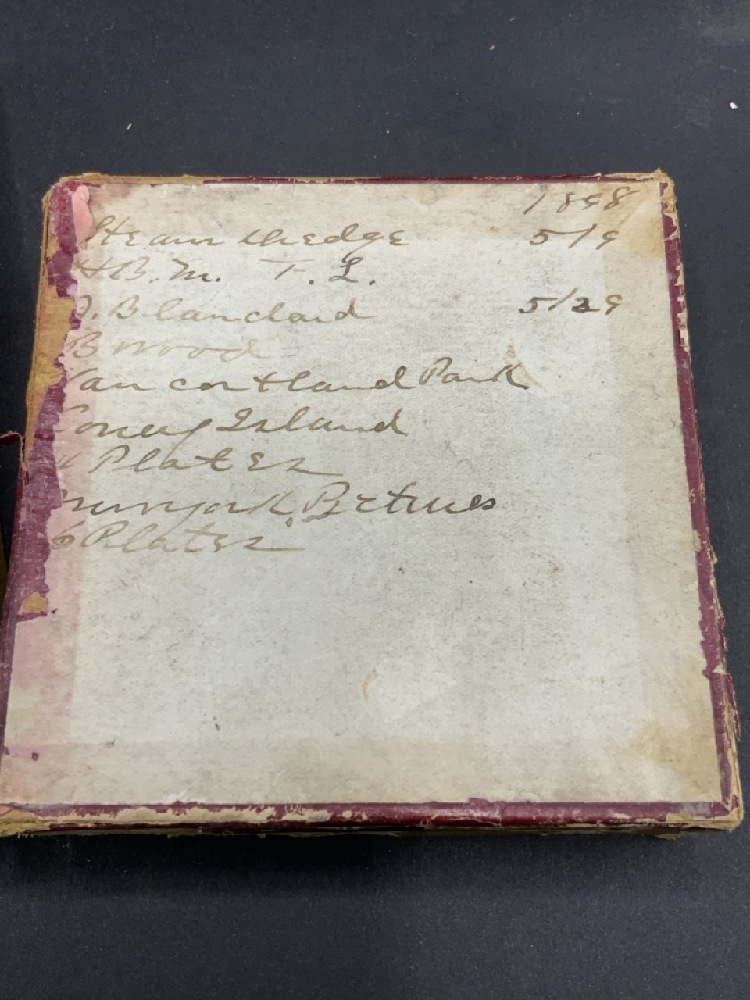 1898
Steam dredge 5/9
H B. M. T. L.
. Blanchard 5/29
B wood
Van cortland Park
Coney Island
Plates
newyork Pictures
6 Plates